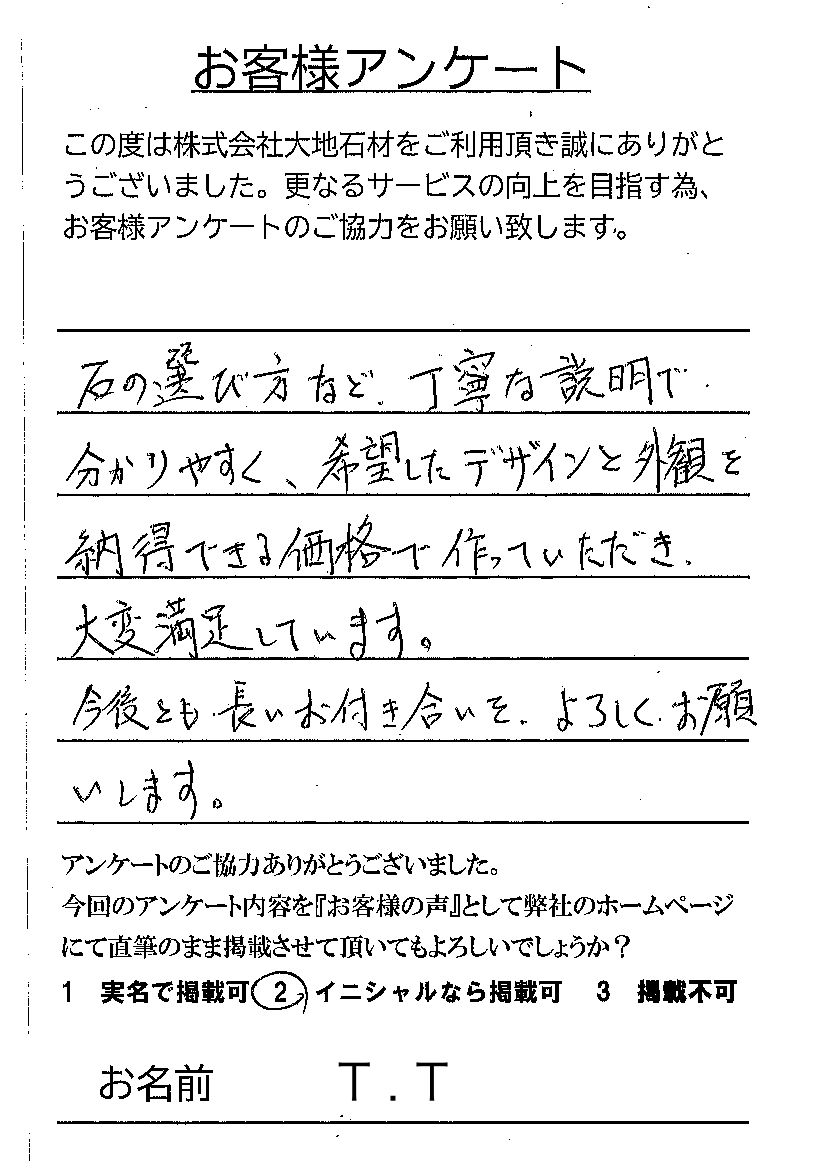 お客様アンケート
この度は株式会社大地石材をご利用頂き誠にありがと
うございました。更なるサービスの向上を目指す為、
お客様アンケートのご協力をお願い致します。
石の選び方など、丁寧な説明で
分かりやすく、希望したデザインと外観を
納得できる価格で作っていただき、
大変満足しています。
今後とも長いお付き合いを、よろしくお願
いします。
アンケートのご協力ありがとうございました。
今回のアンケート内容を『お客様の声』として弊社のホームページ
にて直筆のまま掲載させて頂いてもよろしいでしょうか?
1 実名で掲載可 2 イニシャルなら掲載可 3 掲載不可
お名前 T.T